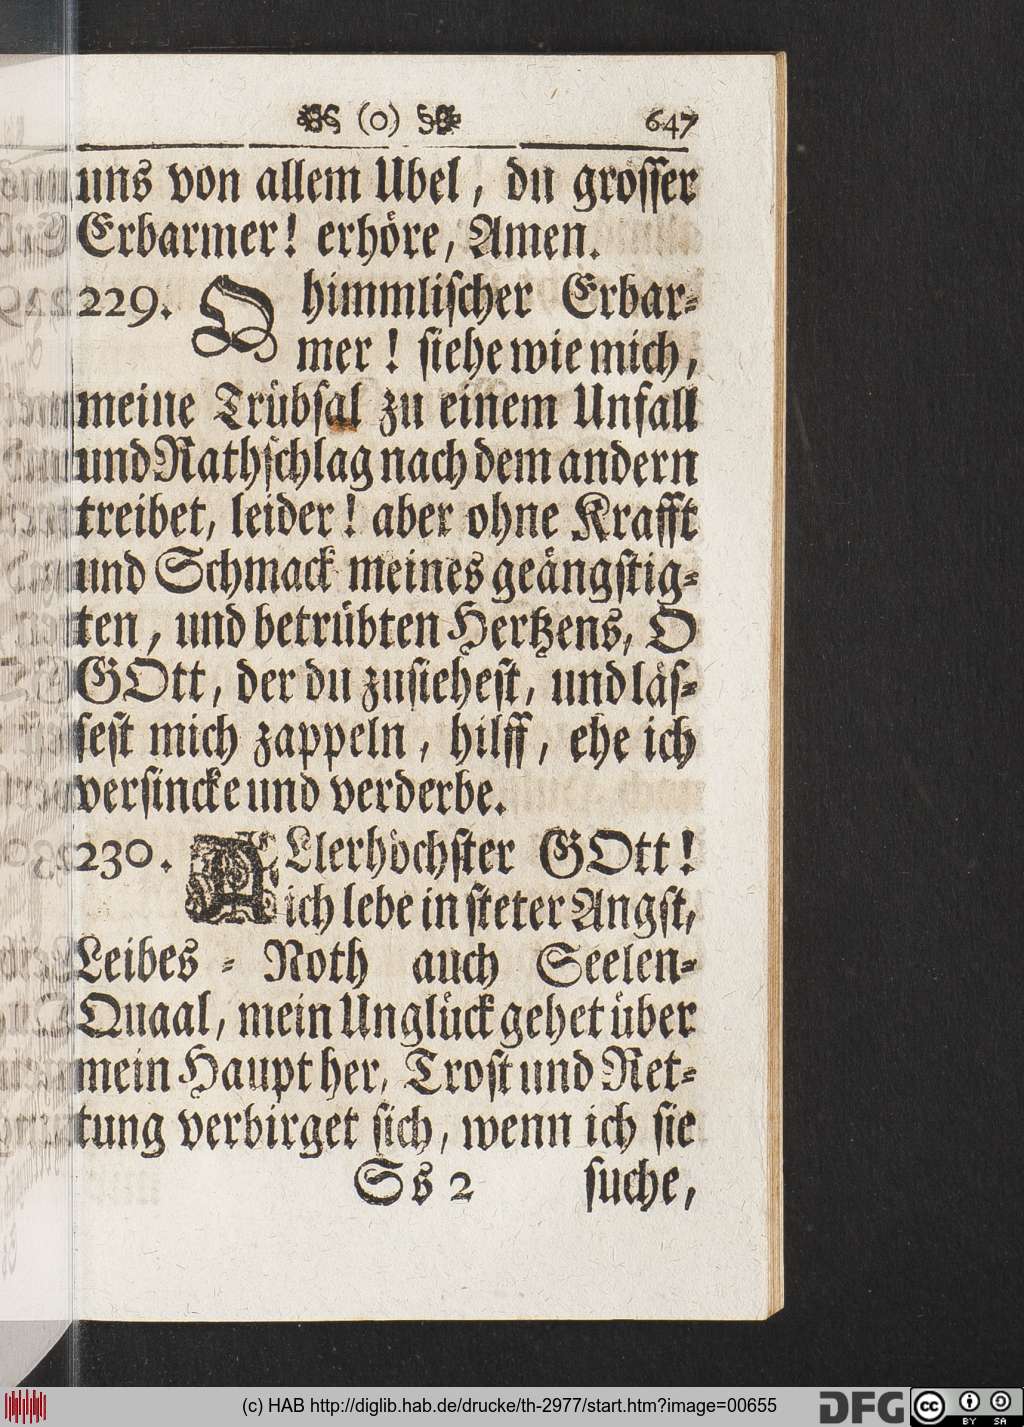 (o) 647
uns von allem Ubel, du groſſer
Erbarmer! erhöre, Amen.
229. O himmliſcher Erbar⸗
mer! ſiehe wie mich,
meine Trübſal zu einem Unfall
und Rathſchlag nach dem andern
treibet, leider! aber ohne Krafft
und Schmack meines geängſtig⸗
ten, und betrübten Hertzens, O
GOtt, der du zuſieheſt, und läſ⸗
ſeſt mich zappeln, hilff, ehe ich
verſincke und verderbe.
230. ALlerhöchſter GOtt!
ich lebe in ſteter Angſt,
Leibes ⸗ Noth auch Seelen⸗
Quaal, mein Unglück gehet über
mein Haupt her, Troſt und Ret⸗
tung verbirget ſich, wenn ich ſie
Ss 2 ſuche,
(c) HAB http://diglib.hab.de/drucke/th-2977/start.htm?image=00655
DFG
cc BY SA